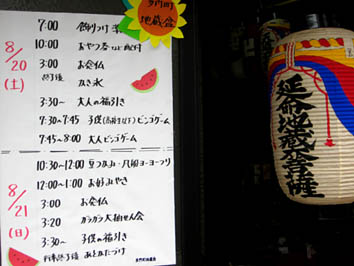 多門町
地蔵盆
8/20
(土)
7:00 飾りつけ
10:00 おやつ券など配付
3:00 お会仏
終了後 かき氷
3:30~ 大人の福引き
7:30~7:45 子供ビンゴゲーム
7:45~8:00 大人ビンゴゲーム
8/21
(日)
10:30~12:00 豆つかみ・風船ヨーヨーつり
12:00~1:00 お好みやき
3:00 お会仏
3:20 ガラガラ大抽せん会
3:30~ 子供の福引き
行事終了後 あとかたづけ
延命地蔵菩薩